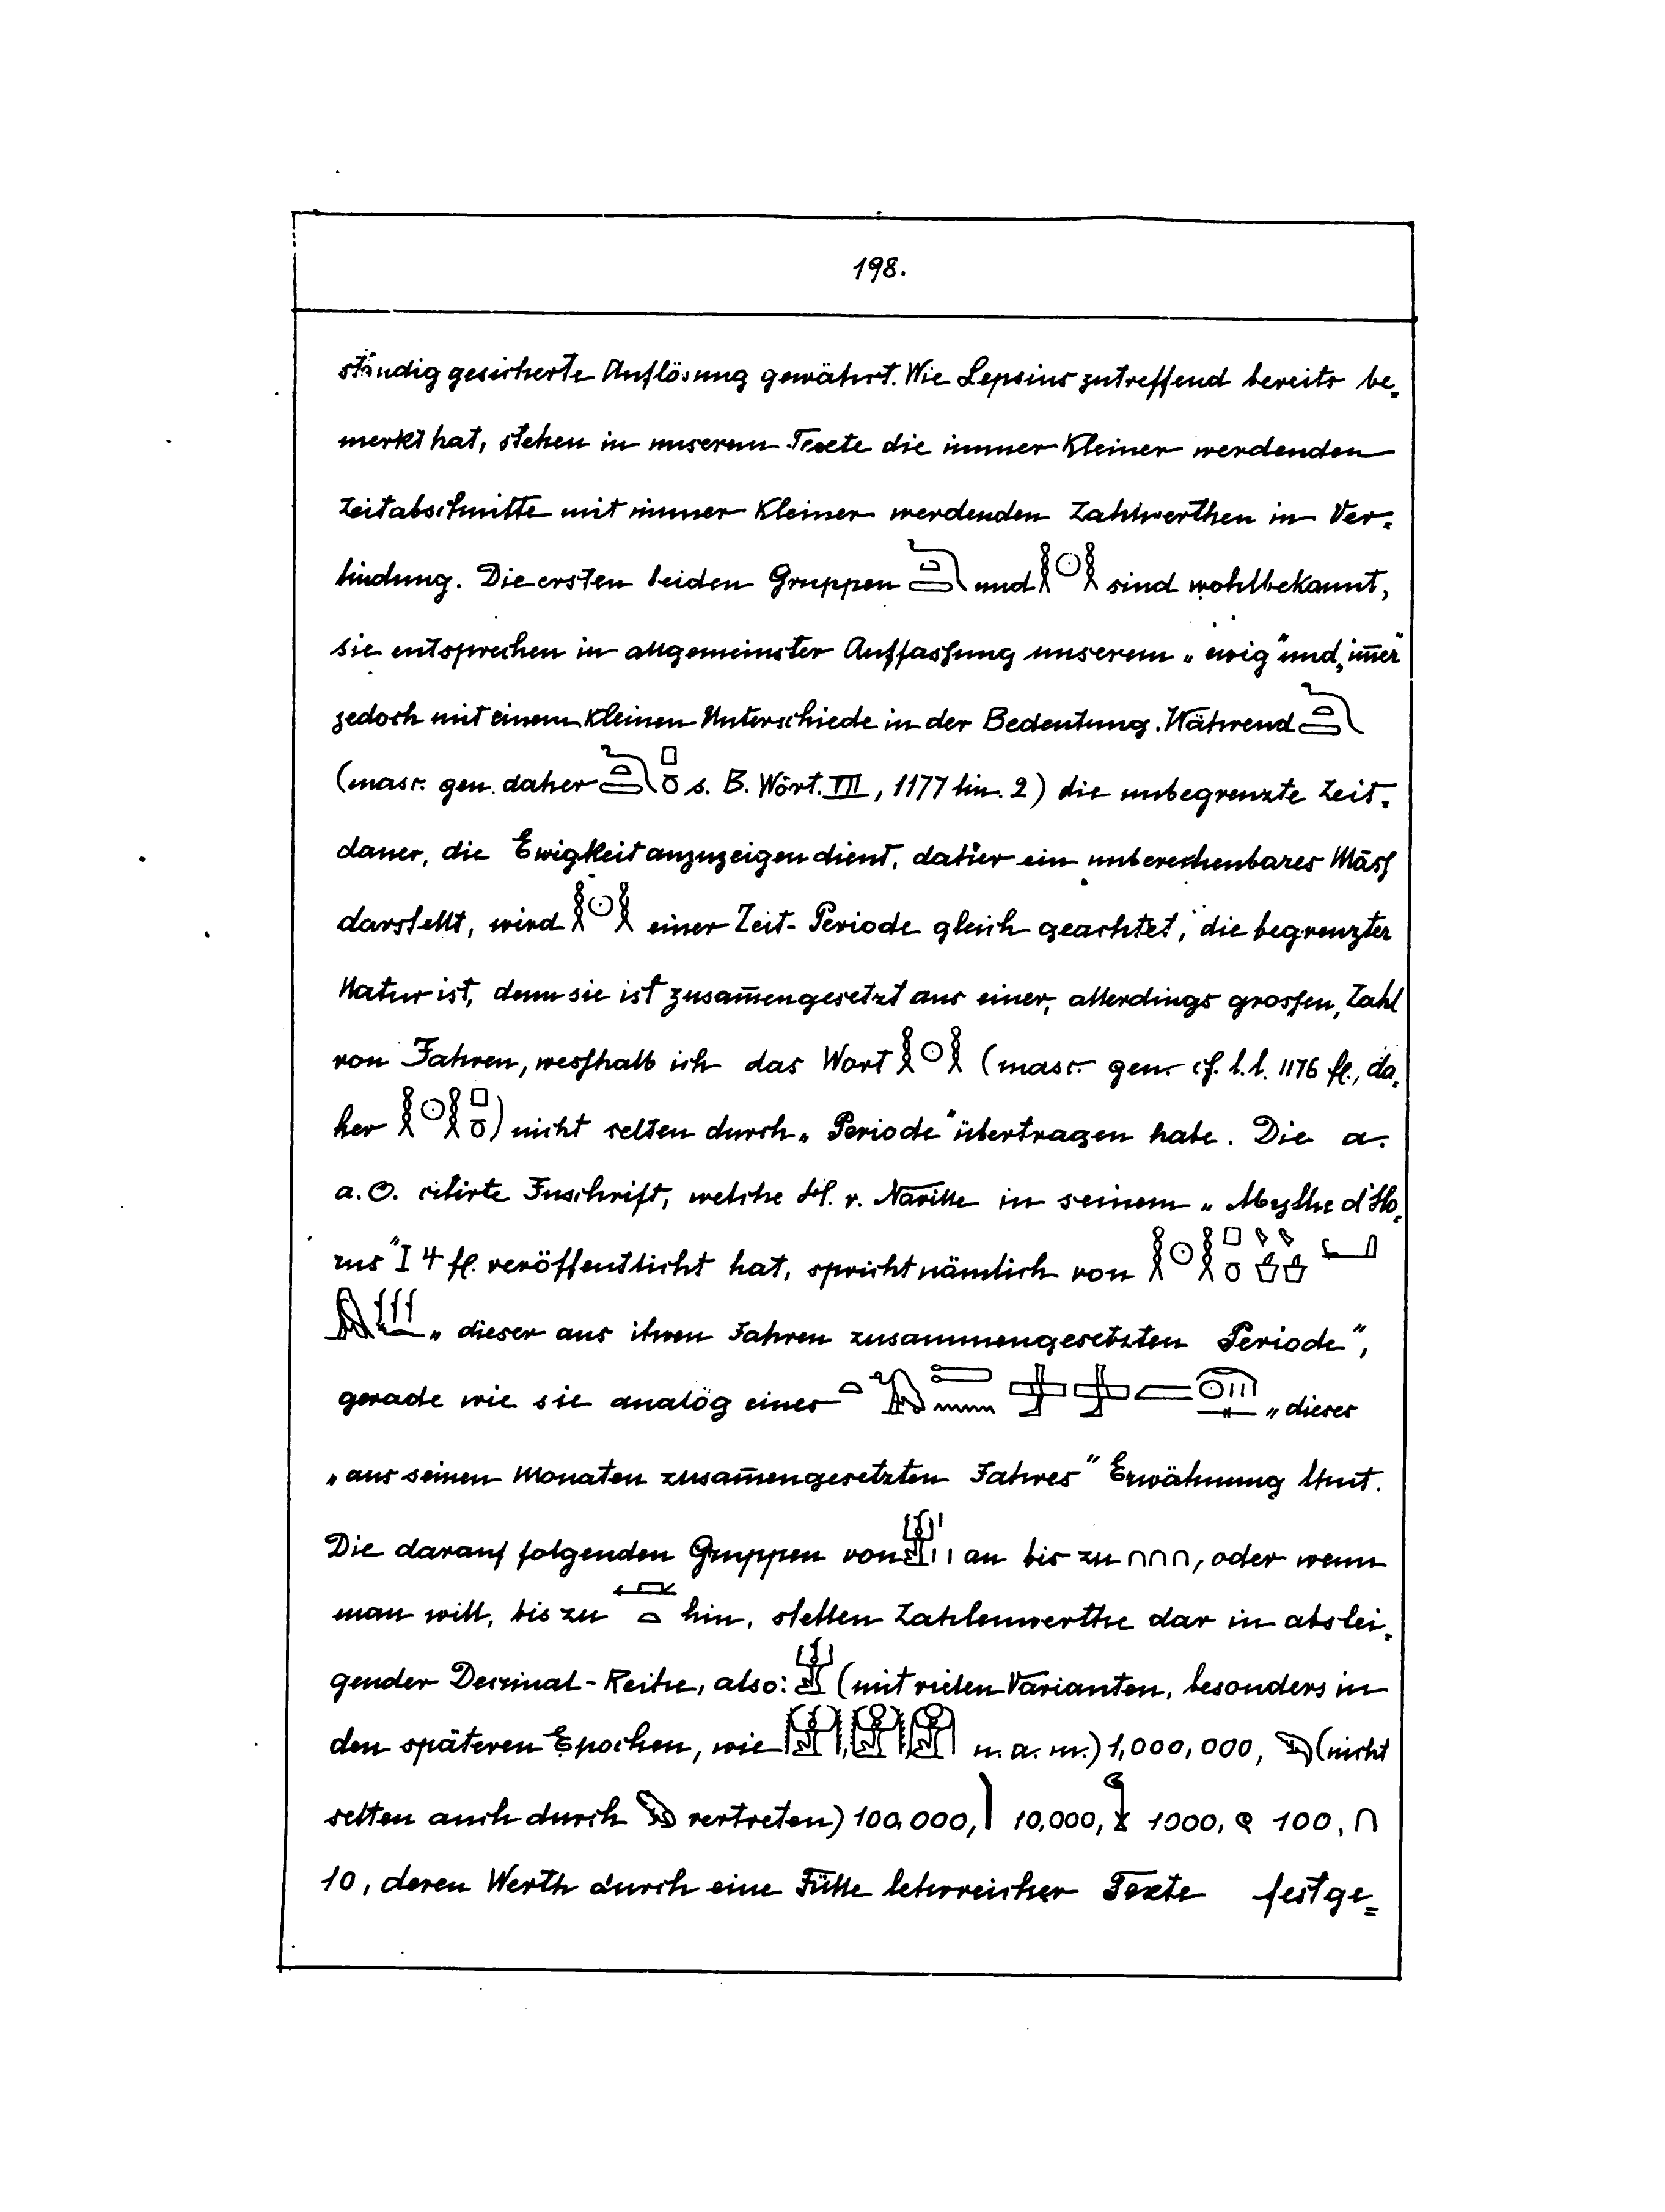 198.
ständig gesicherte Auflösung gewährt. Wie Lepsius zutreffend bereits be-
merkt hat, stehen in unserem Texte die immer kleiner werdenden
Zeitabschnitte mit immer kleiner werdenden Zahlwerthen in Ver-
bindung. Die ersten beiden Gruppen und 𓎛𓇳𓎛 sind wohlbekannt,
sie entsprechen in allgemeinster Auffassung unserem „ewig" und „im̄er"
jedoch mit einem kleinen Unterschiede in der Bedeutung. Während
(masc. gen. daher s. B. Wört. VII, 1177 lin. 2) die unbegrenzte Zeit-
dauer, die Ewigkeit anzuzeigen dient, daher ein unberechenbares Mass
darstellt, wird 𓎛𓇳𓎛 einer Zeit-Periode gleich geachtet, die begrenzter
Natur ist, denn sie ist zusam̄engesetzt aus einer, allerdings grossen, Zahl
von Jahren, wesshalb ich das Wort 𓎛𓇳𓎛 (masc. gen. cf. l. l. 1176 fl., da-
her 𓎛𓇳𓎛) nicht selten durch „Periode" übertragen habe. Die a.
a. O. citirte Inschrift, welche H. v. Naville in seinem „Mythe d'Ho-
rus" I 4 fl. veröffentlicht hat, spricht nämlich von 𓎛𓇳𓎛
„dieser aus ihren Jahren zusammengesetzten Periode",
gerade wie sie analog einer „dieses
„aus seinen Monaten zusam̄engesetzten Jahres" Erwähnung thut.
Die darauf folgenden Gruppen von an bis zu ∩∩∩, oder wenn
man will, bis zu hin, stellen Zahlenwerthe dar in abstei-
gender Decimal-Reihe, also: 𓁨 (mit vielen Varianten, besonders in
den späteren Epochen, wie u. a. m.) 1,000,000, 𓆐 (nicht
selten auch durch vertreten) 100,000, 𓂭 10,000, 𓆼 1000, 𓍢 100, ∩
10, deren Werth durch eine Fülle lehrreicher Texte festge-